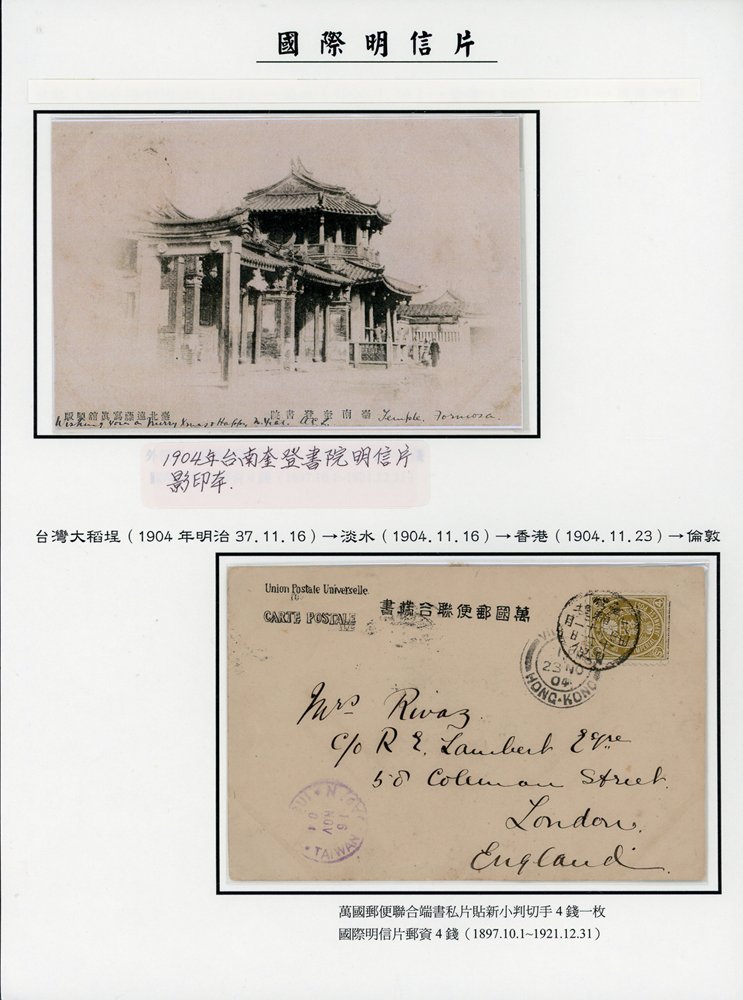 國際明信片
臺北遠藤寫眞館製版
臺南奎登書院
Wishing you a Merry Xmas & Happy N. Year.
Temple. Formosa.
1904年台南奎登書院明信片
影印本.
台灣大稻埕(1904年明治37.11.16)→淡水(1904.11.16)→香港(1904.11.23)→倫敦
Union Postale Universelle.
CARTE POSTALE
萬國郵便聯合端書
23 NO
04
HONG-KONG
Mrs Rivaz
c/o R E. Lambert Esqre
58 Coleman Street.
London.
England.
16
NOV
04
TAIWAN
萬國郵便聯合端書私片貼新小判切手4錢一枚
國際明信片郵資4錢(1897.10.1~1921.12.31)